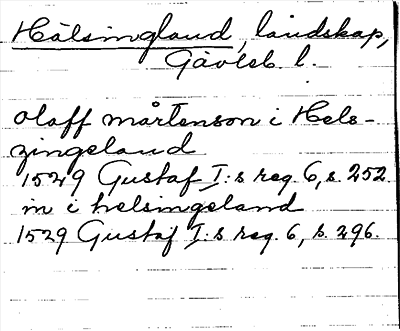 Hälsingland, landskap,
Gävleb. l.
olaff mårtenson i Hels-
zingeland
1529 Gustaf I:s reg. 6, s. 252.
in i helsingeland
1529 Gustaf I:s reg. 6, s. 296.